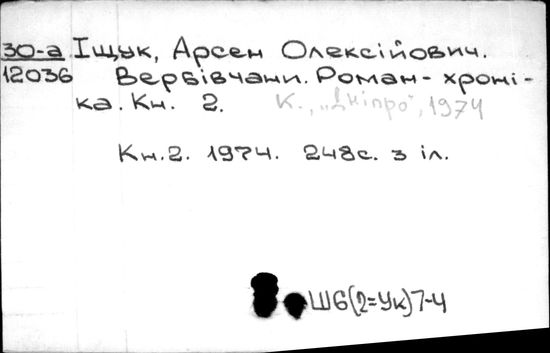 30-а Іщук, Арсен Олексійович.
12036 Вербівчани. Роман-хроні-
ка. Кн. 2. К., „Дніпро", 1974
Кн. 2. 1974. 248с. з іл.
Ш6(2=Ук)7-4